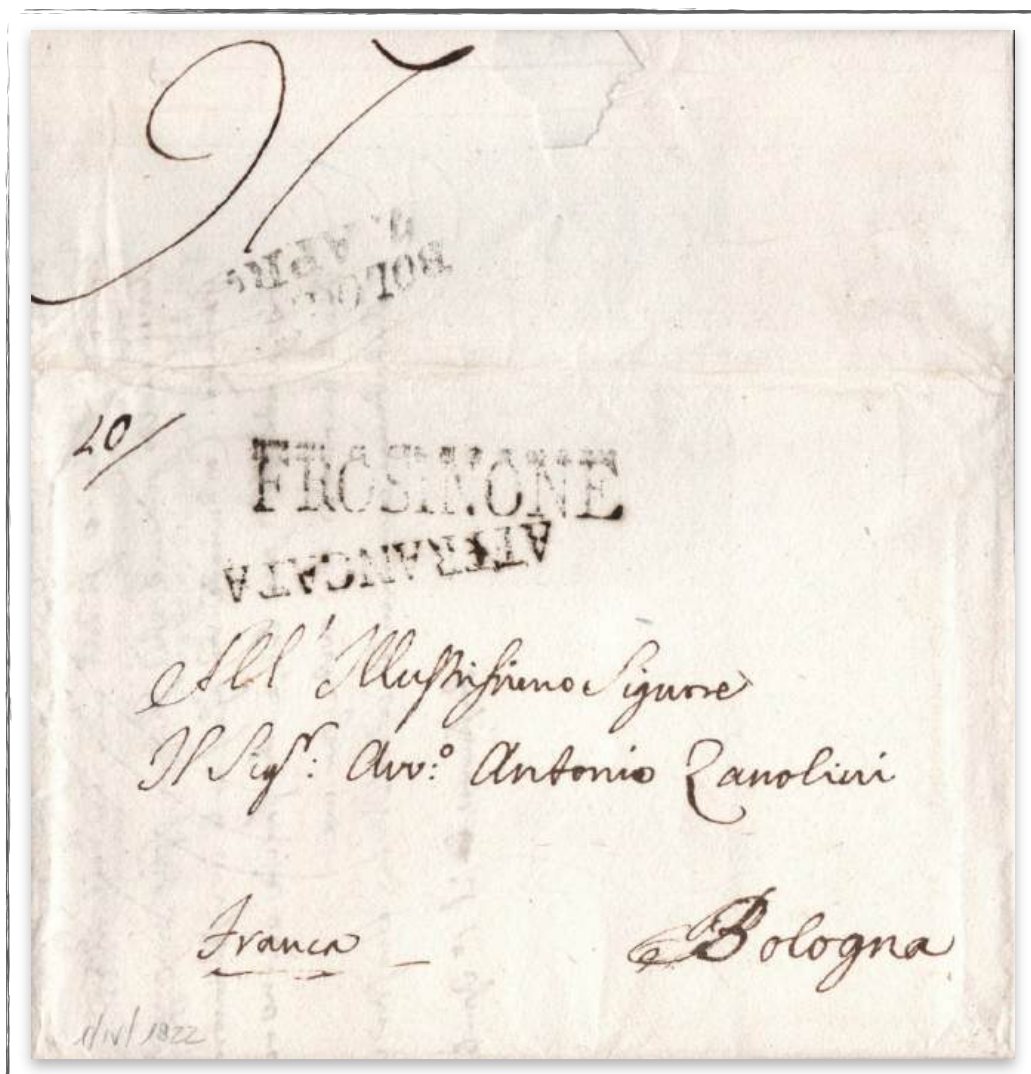 BOLOGNA
9. APR.
20
FROSINONE
AFFRANCATA
All' Illustrissimo Signore
Il Sig.r: Avv:o Antonio Zanolini
Franca
Bologna
1/IV/1822